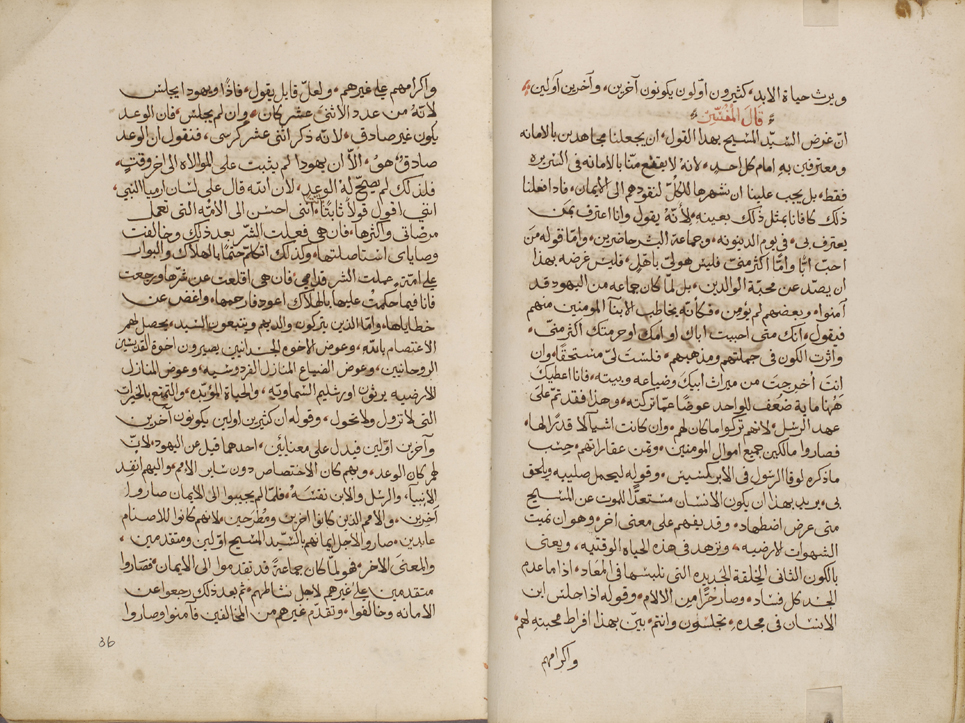 ويرث حياة الابد، كثيرون اولون يكونون آخرين، وآخرين اولين
قال المفسّر
انّ غرض السيّد المسيح بهذا القول، ان يجعلنا مجاهدين بالامانه
ومعترفين به امام كل احد، لانه لا يقنع منّا بالامانه في السريره
فقط، بل يجب علينا ان نشهرها للكلّ لنقودهم الى الايمان، فاذا فعلنا
ذلك كافانا بمثل ذلك بعينه، لأنهُ يقول وانا اعترف بمن
يعترف بي، في يوم الدينونه، وجماعة البشر حاضرين، وامّا قوله من
احبّ ابًا وامًّا اكثر منّي فليس هو لي باهلٍ، فليس غرضه بهذا
ان يصدّنا عن محبّة الوالدين، بل لمّا كان جماعه من اليهود قد
آمنوا، وبعضهم لم يؤمن، فكأنه يخاطب الابنا المومنين منهم
فيقول، انك متى احببت اباك او امك او حرمتك اكثر منّي،
واثرت الكون في جملتهم ومذهبهم، فلستَ لي مستحقًا، وان
انت أخرجت من ميراث ابيك وضياعه وبيته، فانا اعطيك
ههنا ماية ضعف للواحد عوضًا عمّا تركته، وهذا فقد تمّ على
عهد الرسل، لانهم تركوا ما كان لهم، وان كانت اشيآ لا قدر لها،
فصاروا مالكين جميع اموال المومنين، وثمن عقاراتهم، حسب
ما ذكره لوقا الرسول في الابركسيس، وقوله ليحمل صليبه ويلحق
بي، يريد بهذا ان يكون الانسان مستعدًّا للموت عن المسيح
متى عرض اضطهاد، وقد يفهم على معنى آخر، وهو ان نميت
الشهوات الارضيه، ونزهد في هذه الحياة الوقتيه، ويعنى
بالكون الثاني الخلقة الجديده التي نلبسها في المعاد، اذا ما عدم
الجسد كل فساد، وصار حرًّا من الالام، وقوله اذا جلس ابن
الانسان في مجده، تجلسون وانتم، بيّن بهذا افراط محبته لهم،
واكرامهم
واكرامهم على غيرهم، ولعلّ قايل يقول، فاذًا ويهودا يجلس
لانهُ من عدد الاثنى عشر كان، وان لم يجلس، فان الوعد
يكون غير صادق، لانه ذكر اثنى عشر كرسي، فنقول ان الوعد
صادق هو، الاّ ان يهودا لم يثبت على الموالاه الى اخر وقتٍ،
فلذلك لم يصحّ لهُ الوعد، لان الله قال على لسان ارميا النبي،
انني اقول قولاً ثابتًا، انّني احسن الى الامّه التي تعمل
مرضاتي واكثرها، فان هي فعلت الشرّ بعد ذلك وخالفت
وصاياى استاصلتها، وكذلك اتكلم حتمًا بالهلاك والبوار
على امّةٍ عملت الشر قدامي، فان هي اقلعت عن شرّها ورجعت
فانا فيما حكمت عليها بالهلاك اعود فارحمها، واغضّ عن
خطاياها، وامّا الذين يتركون والديهم ويتبعون السيد، يحصل لهم
الاعتصام بالله، وعوض الاخوه الجسدانيين يصيرون اخوة القديسين
الروحانيين، وعوض الضياع المنازل الفردوسيه، وعوض المنازل
الارضيه يرثون اورشليم السماويّه، والحياة المؤبّده، والتمتع بالخيرات
التي لا تزول ولا تحول، وقوله ان كثيرين اولين يكونون آخرين
وآخرين اوّلين فيدل على معنايين، احدهما قيل عن اليهود، لانّ
لهم كان الوعد، وبهم كان الاختصاص دون ساير الامم، واليهم انفذ
الأنبيآ، والرسل والابن نفسهُ، فلمّا لم يجيبوا الى الايمان صاروا
آخرين، والامم الذين كانوا اخرين ومُطّرحين، لانهم كانوا للاصنام
عابدين، صاروا لاجل ايمانهم بالسيّد المسيح اوّلين ومتقدمين،
والمعنى الاخر، هو لما كان جماعةً قد تقدموا الى الايمان، فصاروا
متقدمين على غيرهم لاجل نشاطهم، ثم بعد ذلك رجعوا عن
الامانه وخالفوا، وتقدّم غيرهم من المخالفين فامنوا وصاروا
36